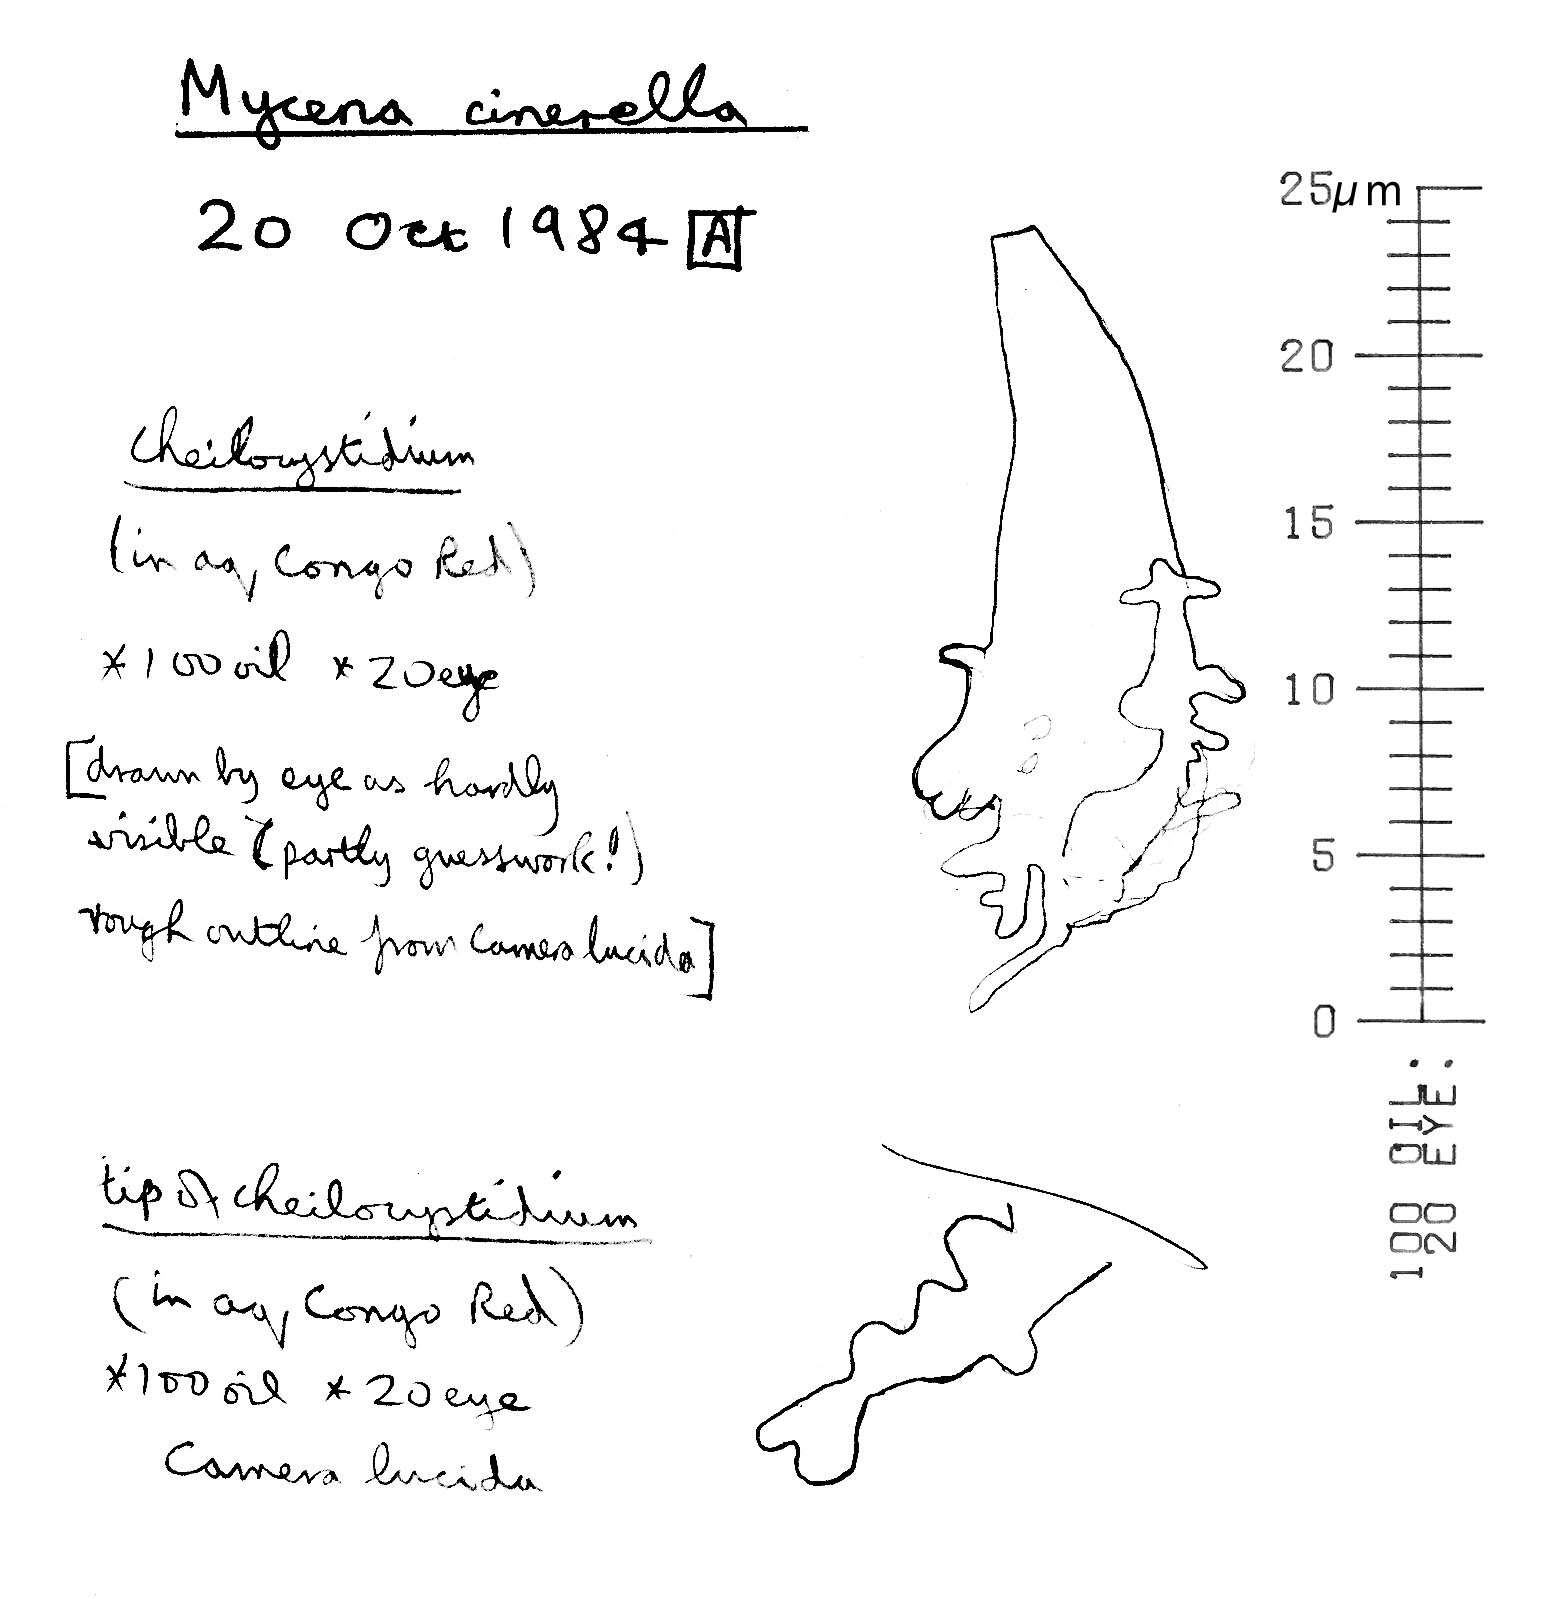 Mycena cinerella
20 Oct 1984 A
cheilocystidium
(in aq, Congo Red)
*100 oil *20 eye
[drawn by eye as hardly
visible (partly guesswork!)
rough outline from Camera lucida]
25µm
20
15
10
5
0
100 OIL:
20 EYE:
tip of cheilocystidium
(in aq, Congo Red)
*100 oil *20 eye
Camera lucida